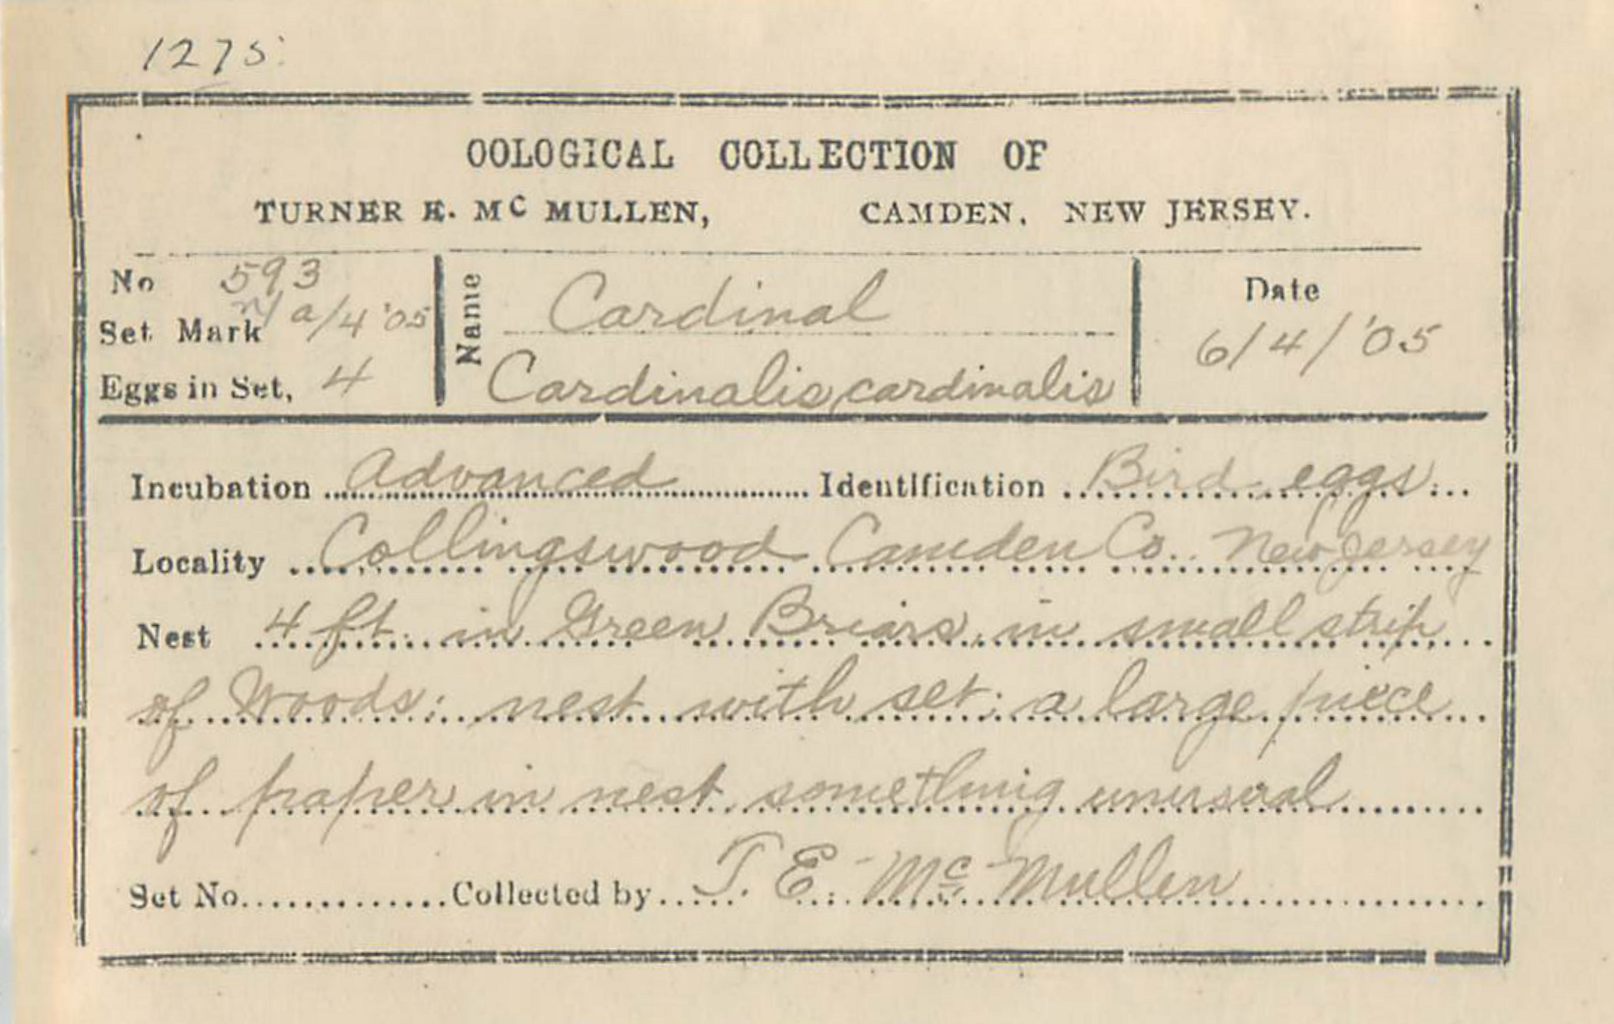 1275
OOLOGICAL COLLECTION OF
TURNER E. Mc MULLEN, CAMDEN, NEW JERSEY.
No 593
Set Mark n/a/4 '05
Eggs in Set, 4
Name Cardinal
Cardinalis cardinalis
Date
6/4/'05
Incubation Advanced Identification Bird eggs.
Locality Collingswood Camden Co. New Jersey
Nest 4 ft. in Green Briars, in small strip
of Woods; nest with set; a large piece
of paper in nest, something unusual
Set No. Collected by T. E. Mc Mullen